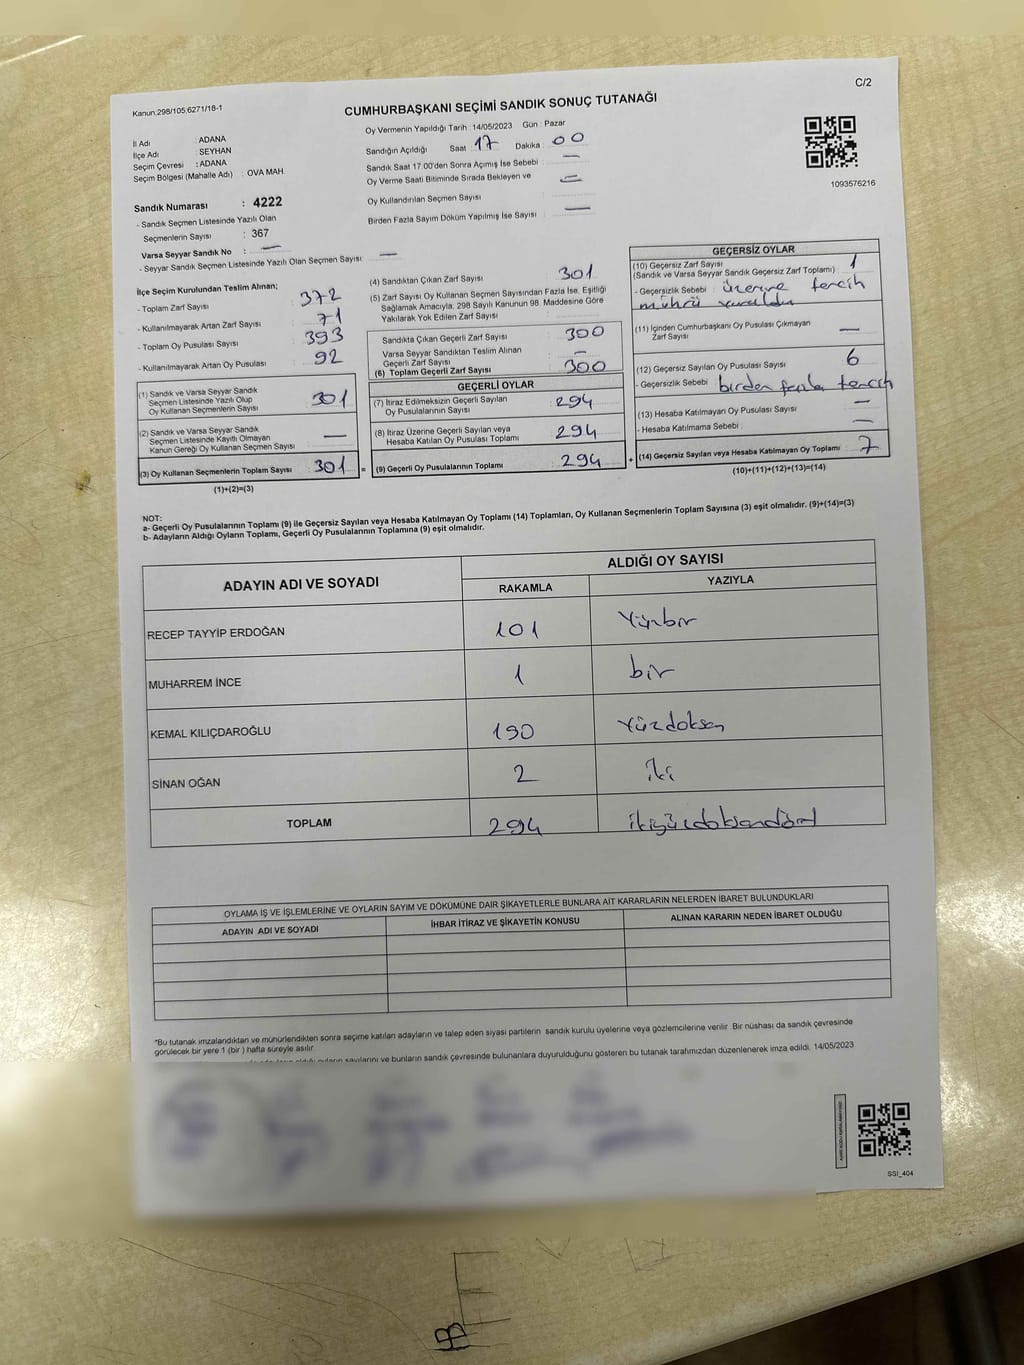 C/2
Kanun:298/105.6271/18-1
CUMHURBAŞKANI SEÇİMİ SANDIK SONUÇ TUTANAĞI
İl Adı : ADANA
İlçe Adı SEYHAN
Seçim Çevresi : ADANA
Seçim Bölgesi (Mahalle Adı) : OVA MAH
Sandık Numarası : 4222
- Sandık Seçmen Listesinde Yazılı Olan
Seçmenlerin Sayısı : 367
Varsa Seyyar Sandık No : —
- Seyyar Sandık Seçmen Listesinde Yazılı Olan Seçmen Sayısı: —
Oy Vermenin Yapıldığı Tarih :14/05/2023 Gün : Pazar
Sandığın Açıldığı Saat : 17 Dakika : 00
Sandık Saat 17.00'den Sonra Açımış İse Sebebi : —
Oy Verme Saati Bitiminde Sırada Bekleyen ve
Oy Kullandırılan Seçmen Sayısı
Birden Fazla Sayım Döküm Yapılmış İse Sayısı : —
1093576216
İlçe Seçim Kurulundan Teslim Alınan;
- Toplam Zarf Sayısı : 372
- Kullanılmayarak Artan Zarf Sayısı : 71
- Toplam Oy Pusulası Sayısı : 393
- Kullanılmayarak Artan Oy Pusulası : 92
(1) Sandık ve Varsa Seyyar Sandık
Seçmen Listesinde Yazılı Olup
Oy Kullanan Seçmenlerin Sayısı : 301
(2) Sandık ve Varsa Seyyar Sandık
Seçmen Listesinde Kayıtlı Olmayan
Kanun Gereği Oy Kullanan Seçmen Sayısı : —
(3) Oy Kullanan Seçmenlerin Toplam Sayısı : 301
(1)+(2)=(3)
=
(4) Sandıktan Çıkan Zarf Sayısı : 301
(5) Zarf Sayısı Oy Kullanan Seçmen Sayısından Fazla İse, Eşitliği
Sağlamak Amacıyla, 298 Sayılı Kanunun 98. Maddesine Göre
Yakılarak Yok Edilen Zarf Sayısı :
Sandıkta Çıkan Geçerli Zarf Sayısı : 300
Varsa Seyyar Sandıktan Teslim Alınan
Geçerli Zarf Sayısı : —
(6) Toplam Geçerli Zarf Sayısı : 300
GEÇERLİ OYLAR
(7) İtiraz Edilmeksizin Geçerli Sayılan
Oy Pusulalarının Sayısı : 294
(8) İtiraz Üzerine Geçerli Sayılan veya
Hesaba Katılan Oy Pusulası Toplamı : 294
(9) Geçerli Oy Pusulalarının Toplamı : 294
+
GEÇERSİZ OYLAR
(10) Geçersiz Zarf Sayısı : 1
(Sandık ve Varsa Seyyar Sandık Geçersiz Zarf Toplamı)
- Geçersizlik Sebebi : üzerine tercih
mührü vuruldu
(11) İçinden Cumhurbaşkanı Oy Pusulası Çıkmayan
Zarf Sayısı : —
(12) Geçersiz Sayılan Oy Pusulası Sayısı : 6
- Geçersizlik Sebebi : birden fazla tercih
(13) Hesaba Katılmayan Oy Pusulası Sayısı : —
- Hesaba Katılmama Sebebi : —
(14) Geçersiz Sayılan veya Hesaba Katılmayan Oy Toplamı : 7
(10)+(11)+(12)+(13)=(14)
NOT:
a- Geçerli Oy Pusulalarının Toplamı (9) ile Geçersiz Sayılan veya Hesaba Katılmayan Oy Toplamı (14) Toplamları, Oy Kullanan Seçmenlerin Toplam Sayısına (3) eşit olmalıdır. (9)+(14)=(3)
b- Adayların Aldığı Oyların Toplamı, Geçerli Oy Pusulalarının Toplamına (9) eşit olmalıdır.
ADAYIN ADI VE SOYADI ALDIĞI OY SAYISI
RAKAMLA YAZIYLA
RECEP TAYYİP ERDOĞAN 101 Yüzbir
MUHARREM İNCE 1 bir
KEMAL KILIÇDAROĞLU 190 Yüzdoksan
SİNAN OĞAN 2 İki
TOPLAM 294 ikiyüzdoksandört
OYLAMA İŞ VE İŞLEMLERİNE VE OYLARIN SAYIM VE DÖKÜMÜNE DAİR ŞİKAYETLERLE BUNLARA AİT KARARLARIN NELERDEN İBARET BULUNDUKLARI
ADAYIN ADI VE SOYADI İHBAR İTİRAZ VE ŞİKAYETİN KONUSU ALINAN KARARIN NEDEN İBARET OLDUĞU
*Bu tutanak imzalandıktan ve mühürlendikten sonra seçime katılan adayların ve talep eden siyasi partilerin sandık kurulu üyelerine veya gözlemcilerine verilir. Bir nüshası da sandık çevresinde
görülecek bir yere 1 (bir ) hafta süreyle asılır.
oyların sayılarını ve bunların sandık çevresinde bulunanlara duyurulduğunu gösteren bu tutanak tarafımızdan düzenlenerek imza edildi. 14/05/2023
SSI_404